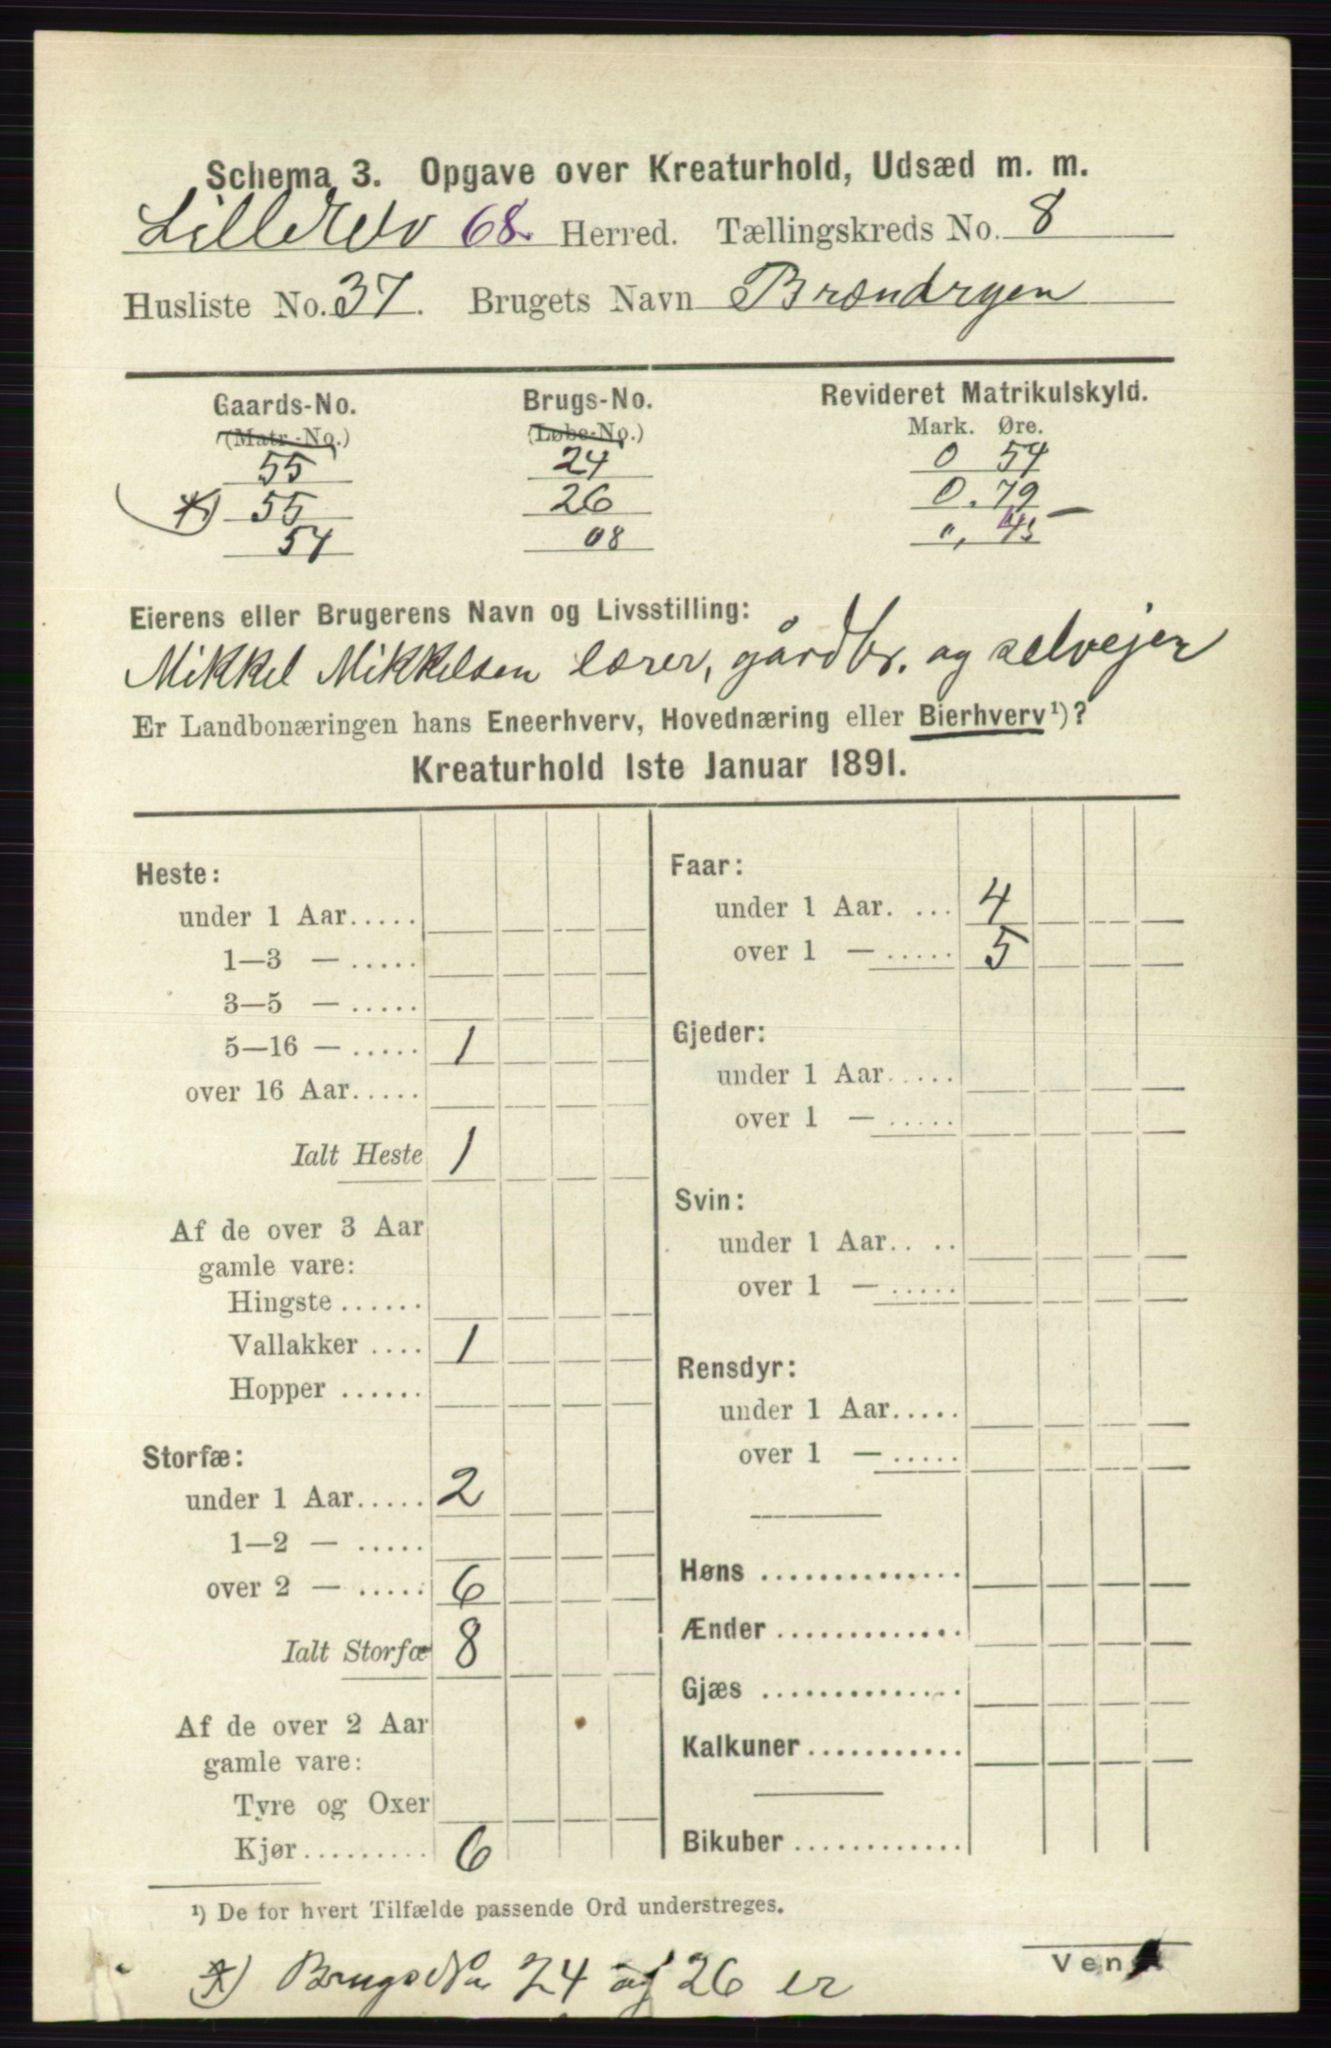 Schema 3. Opgave over Kreaturhold, Udsæd m. m.
68. Herred. Tællingskreds No. 8
Husliste No. 37. Brugets Navn Brændryen
Gaards-No. Brugs-No. Revideret Matrikulskyld.
(Matr.-No.) (Løbe-No.) Mark. Øre.
55 24 0 54
*) 55 26 0.79
54 08 „, 43
Eierens eller Brugerens Navn og Livsstilling:
Mikkel Mikkelsen lærer, gårdbr. og selvejer
Er Landbonæringen hans Eneerhverv, Hovednæring eller Bierhverv¹)?
Kreaturhold 1ste Januar 1891.
Heste:
under 1 Aar.....
1—3 — .....
3—5 — .....
5—16 — ..... 1
over 16 Aar.....
Ialt Heste 1
Af de over 3 Aar
gamle vare:
Hingste ......
Vallakker .... 1
Hopper ......
Storfæ:
under 1 Aar..... 2
1—2 — .....
over 2 — ..... 6
Ialt Storfæ 8
Af de over 2 Aar
gamle vare:
Tyre og Oxer
Kjør......... 6
Faar:
under 1 Aar. ... 4
over 1 — ..... 5
Gjeder:
under 1 Aar.....
over 1 — .....
Svin:
under 1 Aar.. ..
over 1 — .....
Rensdyr:
under 1 Aar.....
over 1 — .....
Høns ..............
Ænder .............
Gjæs ..............
Kalkuner...........
Bikuber ............
¹) De for hvert Tilfælde passende Ord understreges.
*) Brugs No. 24 og 26 er